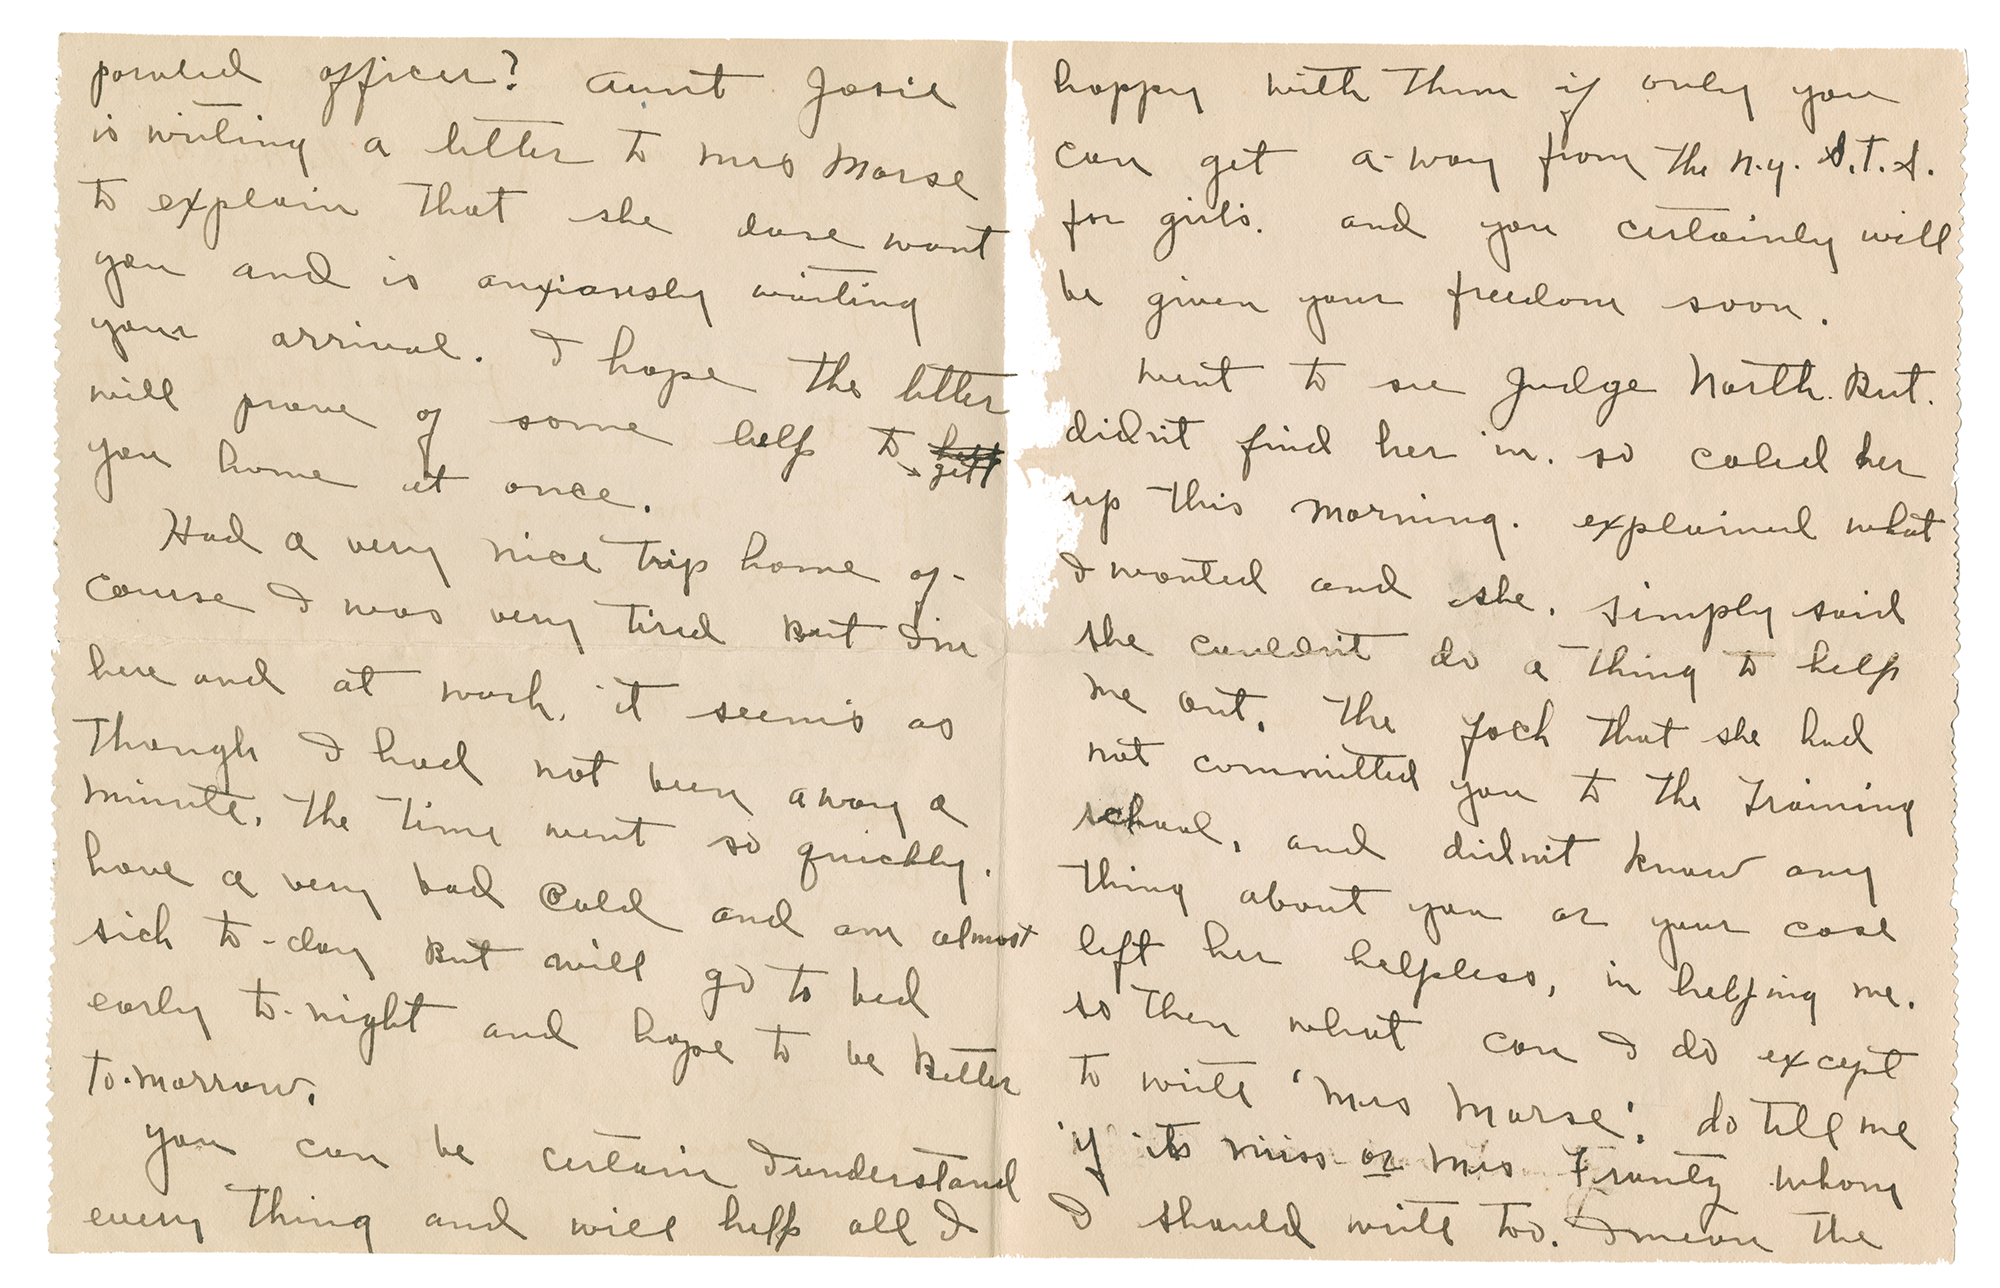 paroled officer? Aunt Josie
is writing a letter to Mrs Morse
to explain that she dose want
you and is anxiously waiting
your arrival. I hope the letter
will prove of some help to get
you home at once.
Had a very nice trip home of-
course I was very tired But I'm
here and at work, it seem's as
though I had not been away a
minute, the time went so quickly.
have a very bad cold and am almost
sick to-day But will go to bed
early to-night and hope to be Better
to-morrow.
you can be certain I understand
every thing and will help all I
happy with them if only you
can get a-way from the N.Y. S.T.S.
for girls. and you certainly will
be given your freedom soon.
went to see Judge North. But.
didn't find her in. so caled her
up this morning. explained what
I wanted and she. simply said
she couldn't do a thing to help
me out, the fack that she had
not committed you to the training
school, and didn't know any
thing about you or your case
left her helpless, in helping me.
so then what can I do except
to write 'Mrs Morse'. do tell me
if its miss or mrs whom
I should write too. I mean the